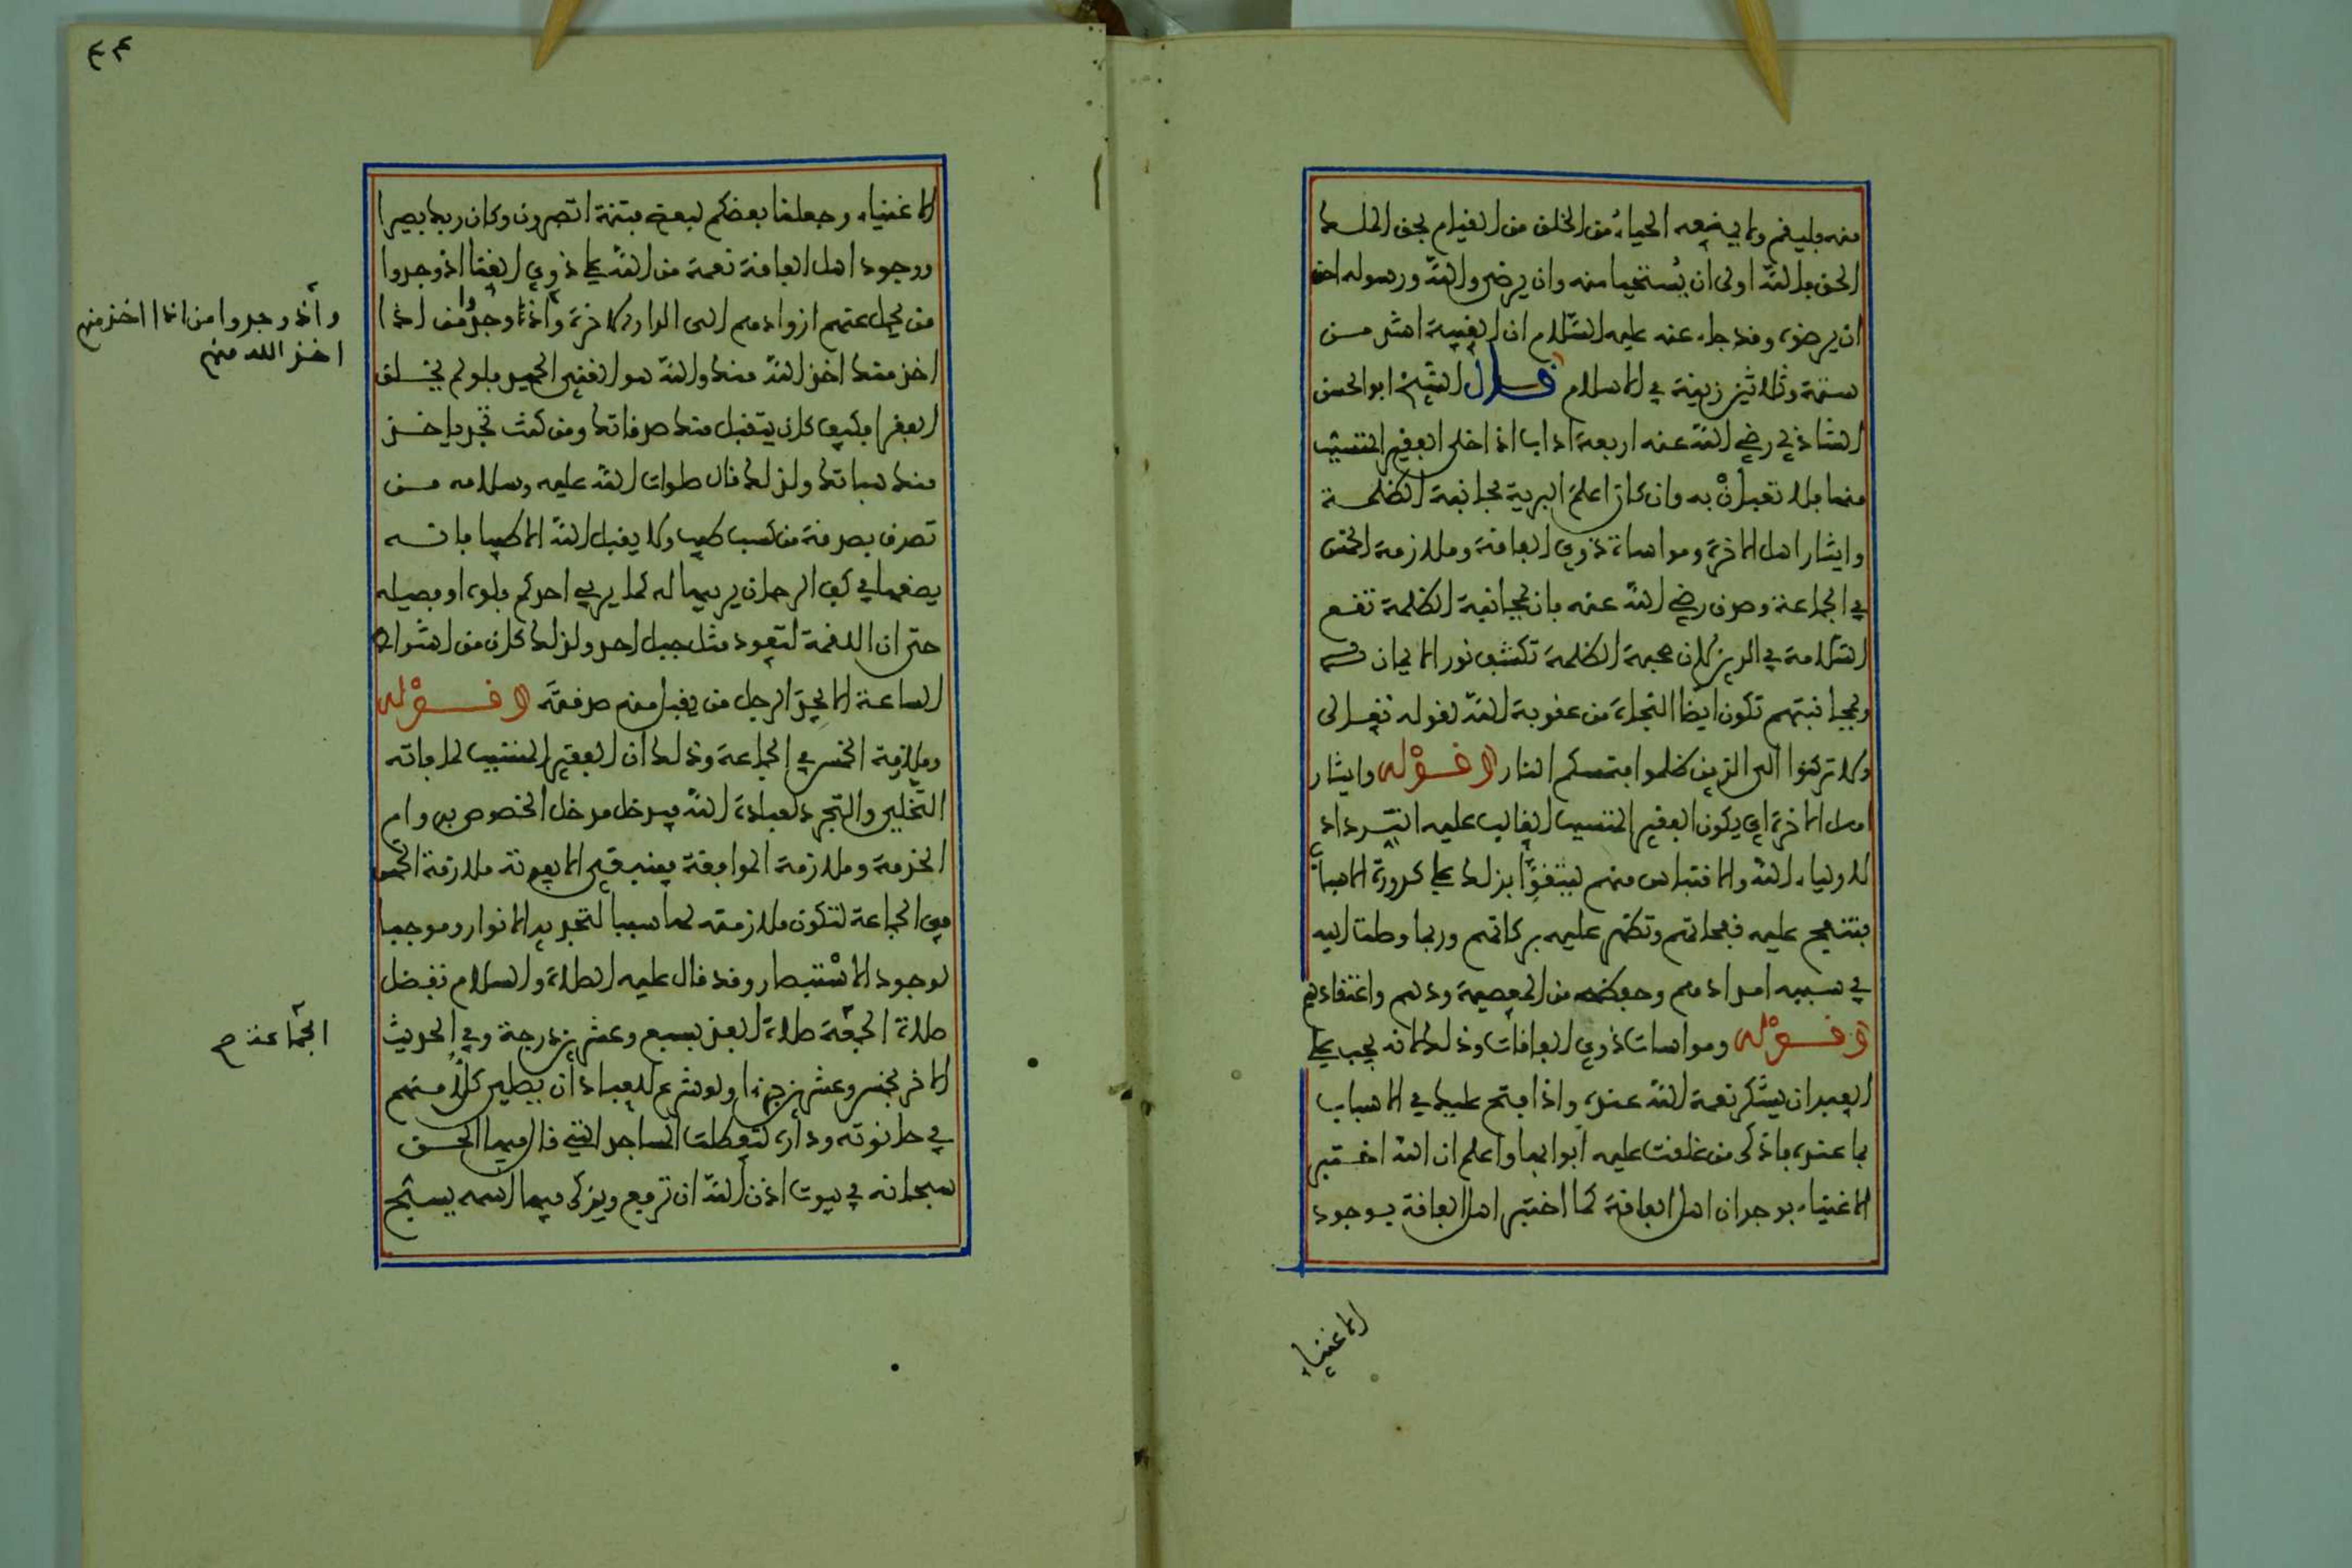 منه فليقم ولا يمنعه الحياء من الخلق من القيام بحق الملك
الحق فالله اولى ان يستحيا منه وان يرضى والله ورسوله احق
ان يرضوه وقد جاء عنه عليه السلام ان الغيبة اشد من
ستة وثلاثين زنية في الاسلام قال الشيخ ابو الحسن
الشاذلي رضي الله عنه اربعة اداب اذا خلى الفقير المتسبب
منها فلا تعبان به وان كان اعلم البرية مجانبة الظلمة
وايثار اهل الاخرة ومواساة ذوي الفاقة وملازمة الخمس
في الجماعة وصدق رضي الله عنه بان بمجانبة الظلمة تقع
السلامة في الدين لان صحبة الظلمة تكسف نور الايمان
وبمجانبتهم تكون ايضا النجاة من عقوبة الله لقوله تعالى
ولا تركنوا الى الذين ظلموا فتمسكم النار وقوله وايثار
اهل الاخرة اي يكون الفقير المتسبب الغالب عليه الترداد
لاولياء الله والاقتباس منهم ليتقوا بذلك على كدورة الاسباب
فتنفح عليه نفحاتهم وتظهر عليه بركاتهم وربما وصلت اليه
في سببه امدادهم وحفظه من المعصية ودهم واعتقادهم
وقوله ومواسات ذوي الفاقات وذلك لانه يجب على
العبد ان يشكر نعمة الله عنده واذا فتح عليك في الاسباب
بما عنده فاذكر من غلقت عليه ابوابها واعلم ان الله اختبر
الاغنياء بوجدان اهل الفاقة كما اختبر اهل الفاقة بوجود
الاغنياء
٣٤
الاغنياء وجعلنا بعضكم لبعض فتنة اتصبرون وكان ربك بصيرا
ووجود اهل الفاقة نعمة من الله على ذوي الغنا اذ وجدوا
من يحمل عنهم ازوادهم الى الدار الاخرة واذا وجدوا من اذا
اخذ منك اخذ الله منك والله هو الغني الحميد فلو لم يخلق
الفقراء فكيف كان يتقبل منك صدقاتك ومن كنت تجد ياخذ
منك هباتك ولذلك قال صلوات الله عليه وسلامه من
تصدق بصدقة من كسب طيب ولا يقبل الله الا طيبا فانه
يضعها في كف الرحمان يربيها له كما يربي احدكم فلوه او فصيله
حتى ان اللقمة لتعود مثل جبل احد ولذلك كان من اشراط
الساعة الا يجد الرجل من يقبل منه صدقته وقوله
وملازمة الخمس في الجماعة وذلك ان الفقير المتسبب لما فاته
التخلي والتجرد لعبادة الله فيدخل مدخل الخصوص بدوام
الخدمة وملازمة الموافقة فينبغي الا يفوته ملازمة الخمس
في الجماعة لتكون ملازمته لها سببا لتجديد الانوار وموجبا
لوجود الاستبصار وقد قال عليه الصلاة والسلام تفضل
صلاة الجمعة صلاة الفذ بسبع وعشرين درجة وفي الحديث
الاخر بخمس وعشرين جزءا ولو شرع للعباد ان يصلي كل منهم
في حانوته وداره لتعطلت المساجد التي قال فيها الحق
سبحانه في بيوت اذن الله ان ترفع ويذكر فيها اسمه يسبح
واذ وجدوا من اذا اخذ منهم
اخذ الله منهم
الجماعة صح